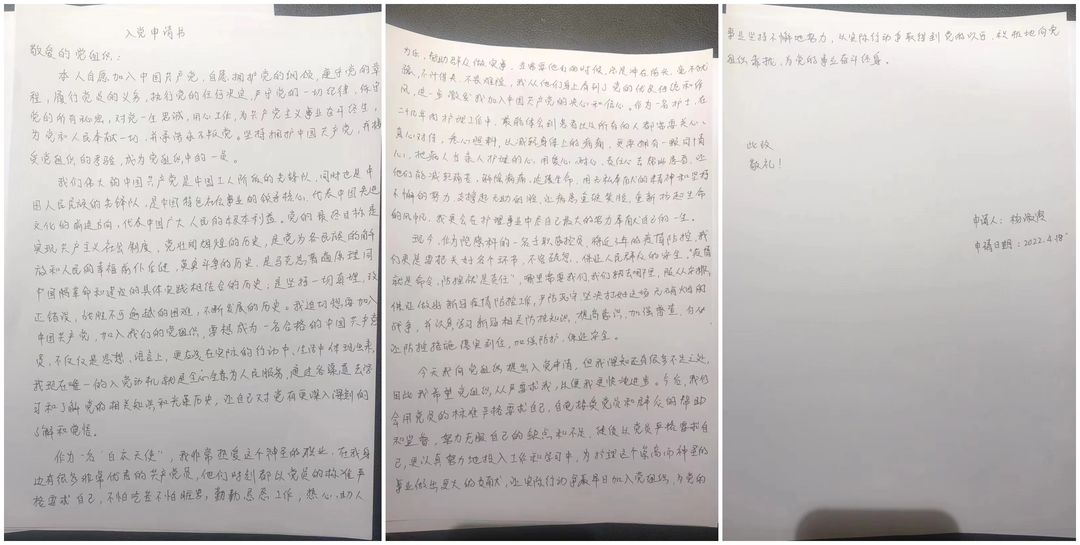 入党申请书
敬爱的党组织:
本人自愿加入中国共产党,自愿拥护党的纲领,遵守党的章
程,履行党员的义务,执行党的任何决定,严守党的一切纪律,保守
党的所有秘密,对党一生忠诚,用心工作,为共产主义事业奋斗终生。
为党和人民奉献一切,并承诺永不叛党。坚持拥护中国共产党,我接
受党组织的考验,成为党组织中的一员。
我们伟大的中国共产党是中国工人阶级的先锋队,同时也是中
国人民民族的先锋队,是中国特色社会事业的领导核心,代表中国先进
文化的前进方向,代表中国广大人民的根本利益。党的最终目标是
实现共产主义社会制度。党壮阔辉煌的历史,是党为各民族的解
放和人民的幸福前仆后继,英勇斗争的历史,是马克思普遍原理同
中国的革命和建设的具体实践相结合的历史;是坚持一切真理,改
正错误,战胜不可逾越的困难,不断发展的历史。我迫切想要加入
中国共产党,加入我们的党组织,要想成为一名合格的中国共产党
员,不仅仅是思想、语言上,更应该在实际的行动中,生活中体现出来,
我现在唯一的入党动机就是全心全意为人民服务,通过各渠道去学
习和了解党的相关知识和光荣历史,让自己对党有更深入深刻的
了解和觉悟。
作为一名“白衣天使”,我非常热爱这个神圣的职业,在我身
边有很多非常优秀的共产党员,他们时刻都以党员的标准严
格要求自己,不怕吃苦不怕脏累,勤勤恳恳工作,热心助人
为乐,帮助群众做实事,当需要他们的时候,总是冲在前头,毫不犹
豫,不计得失,不畏艰险,我从他们身上看到了党的优良传统和作
风,进一步激发我加入中国共产党的决心和信心。作为一名护士,在
二十几年的护理工作中,最能体会到患者比任何的人都需要关心、
真心对待,悉心照料,以减轻身体上的病痛,更要拥有一颗同情
心,把病人当亲人护理的心,用爱心、耐心、责任心去帮助患者,让
他们能减轻痛苦,解除病痛,延续生命,用无私奉献的精神和坚持
不懈的努力,支撑起无助的脸,让病患重破笑脸,重新扬起生命
的风帆,我更会在护理事业中尽自己最大的努力奉献自己的一生。
现今,作为院原科的一名主职感控员,将近3年的疫情防控,我
们更是要把关好各个环节,不容疏忽,保证人民群众的安全,“疫情
就是命令,防控就是责任”,哪里需要我们,我们就去哪里,服从安排,
保证做出新冠疫情防控工作,严防死守坚决打好这场无硝烟的
战争,并认真学习新冠相关防控知识,提高意识,加强督查,自始
让防控措施落实到位,加强防护,保证安全。
今天我向党组织提出入党申请,但我深知还有很多不足之处,
因此我希望党组织,从严要求我,以便我更快地进步。今后,我们
会用党员的标准严格要求自己,自觉接受党员和群众的帮助
和监督,努力克服自己的缺点和不足,继续以党员严格要求自
己,更认真努力地投入工作和学习中,为护理这个崇高而神圣的
事业做出更大的贡献,让实际行动争取早日加入党组织,为党的
事业坚持不懈地努力,以实际行动争取得到党的认可,积极地向党
组织靠拢,为党的事业奋斗终身。
此致
敬礼!
申请人:杨
申请日期:2022.4.18